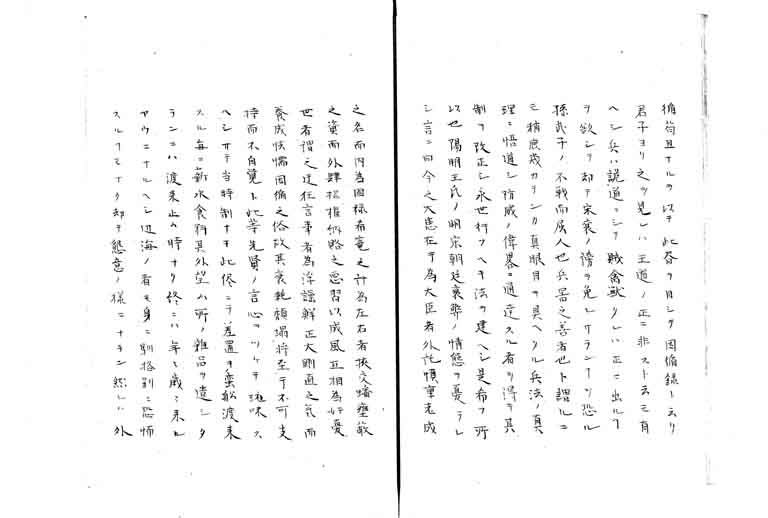 循苟且ナルヲ以テ此吝ヲ目シテ因循録ト云リ
君子ヨリ之ヲ見レハ王道ノ正ニ非スト云モ有
ヘシ兵ハ詭道ニシテ賊禽獣タレハ正ニ出ルヿ
ヲ欲シテ却テ宋襄ノ謗ヲ免レサランヿヲ恐ル
孫武子ノ不戦而屈人也兵善之善者也ト謂ルニ
モ稍庶幾カランカ真眼目ヲ具ヘタル兵法ノ真
理ニ悟道シ防威ノ偉器ニ通達スル者ヲ得テ其
制ヲ改正シ永世行フヘキ法ヲ建ヘシ是希フ所
以也陽明王氏ノ明宗朝廷衰弊ノ情態ヲ憂テ
シ言ニ曰今之大患在于為大臣者外託慎重老成
之名而内為固禄希寵之計為左右者挟交蟠壅蔽
之資而外肆招権納賂之悪習以成風互相為奸憂
世者謂之迂狂言事者為浮議鮮正大剛直之気而
養成怯懦因循之俗故其衰耗頽塌将至于不可支
持而不自覚ト此等先賢ノ言心ヲツケテ玩味ス
ヘシサテ当時制ナキ此侭ニテ差置ヲ蛮船渡来
スル毎ニ薪水食料其外望ム所ノ雑品ヲ遣シタ
ランニハ渡来止ム時ナク終ニハ年々歳々来ル
ヤウニナルヘシ辺海ノ者モ身ニ馴格別ニ恐怖
スルヿモナク却テ懇意ノ様ニナラン然レハ外